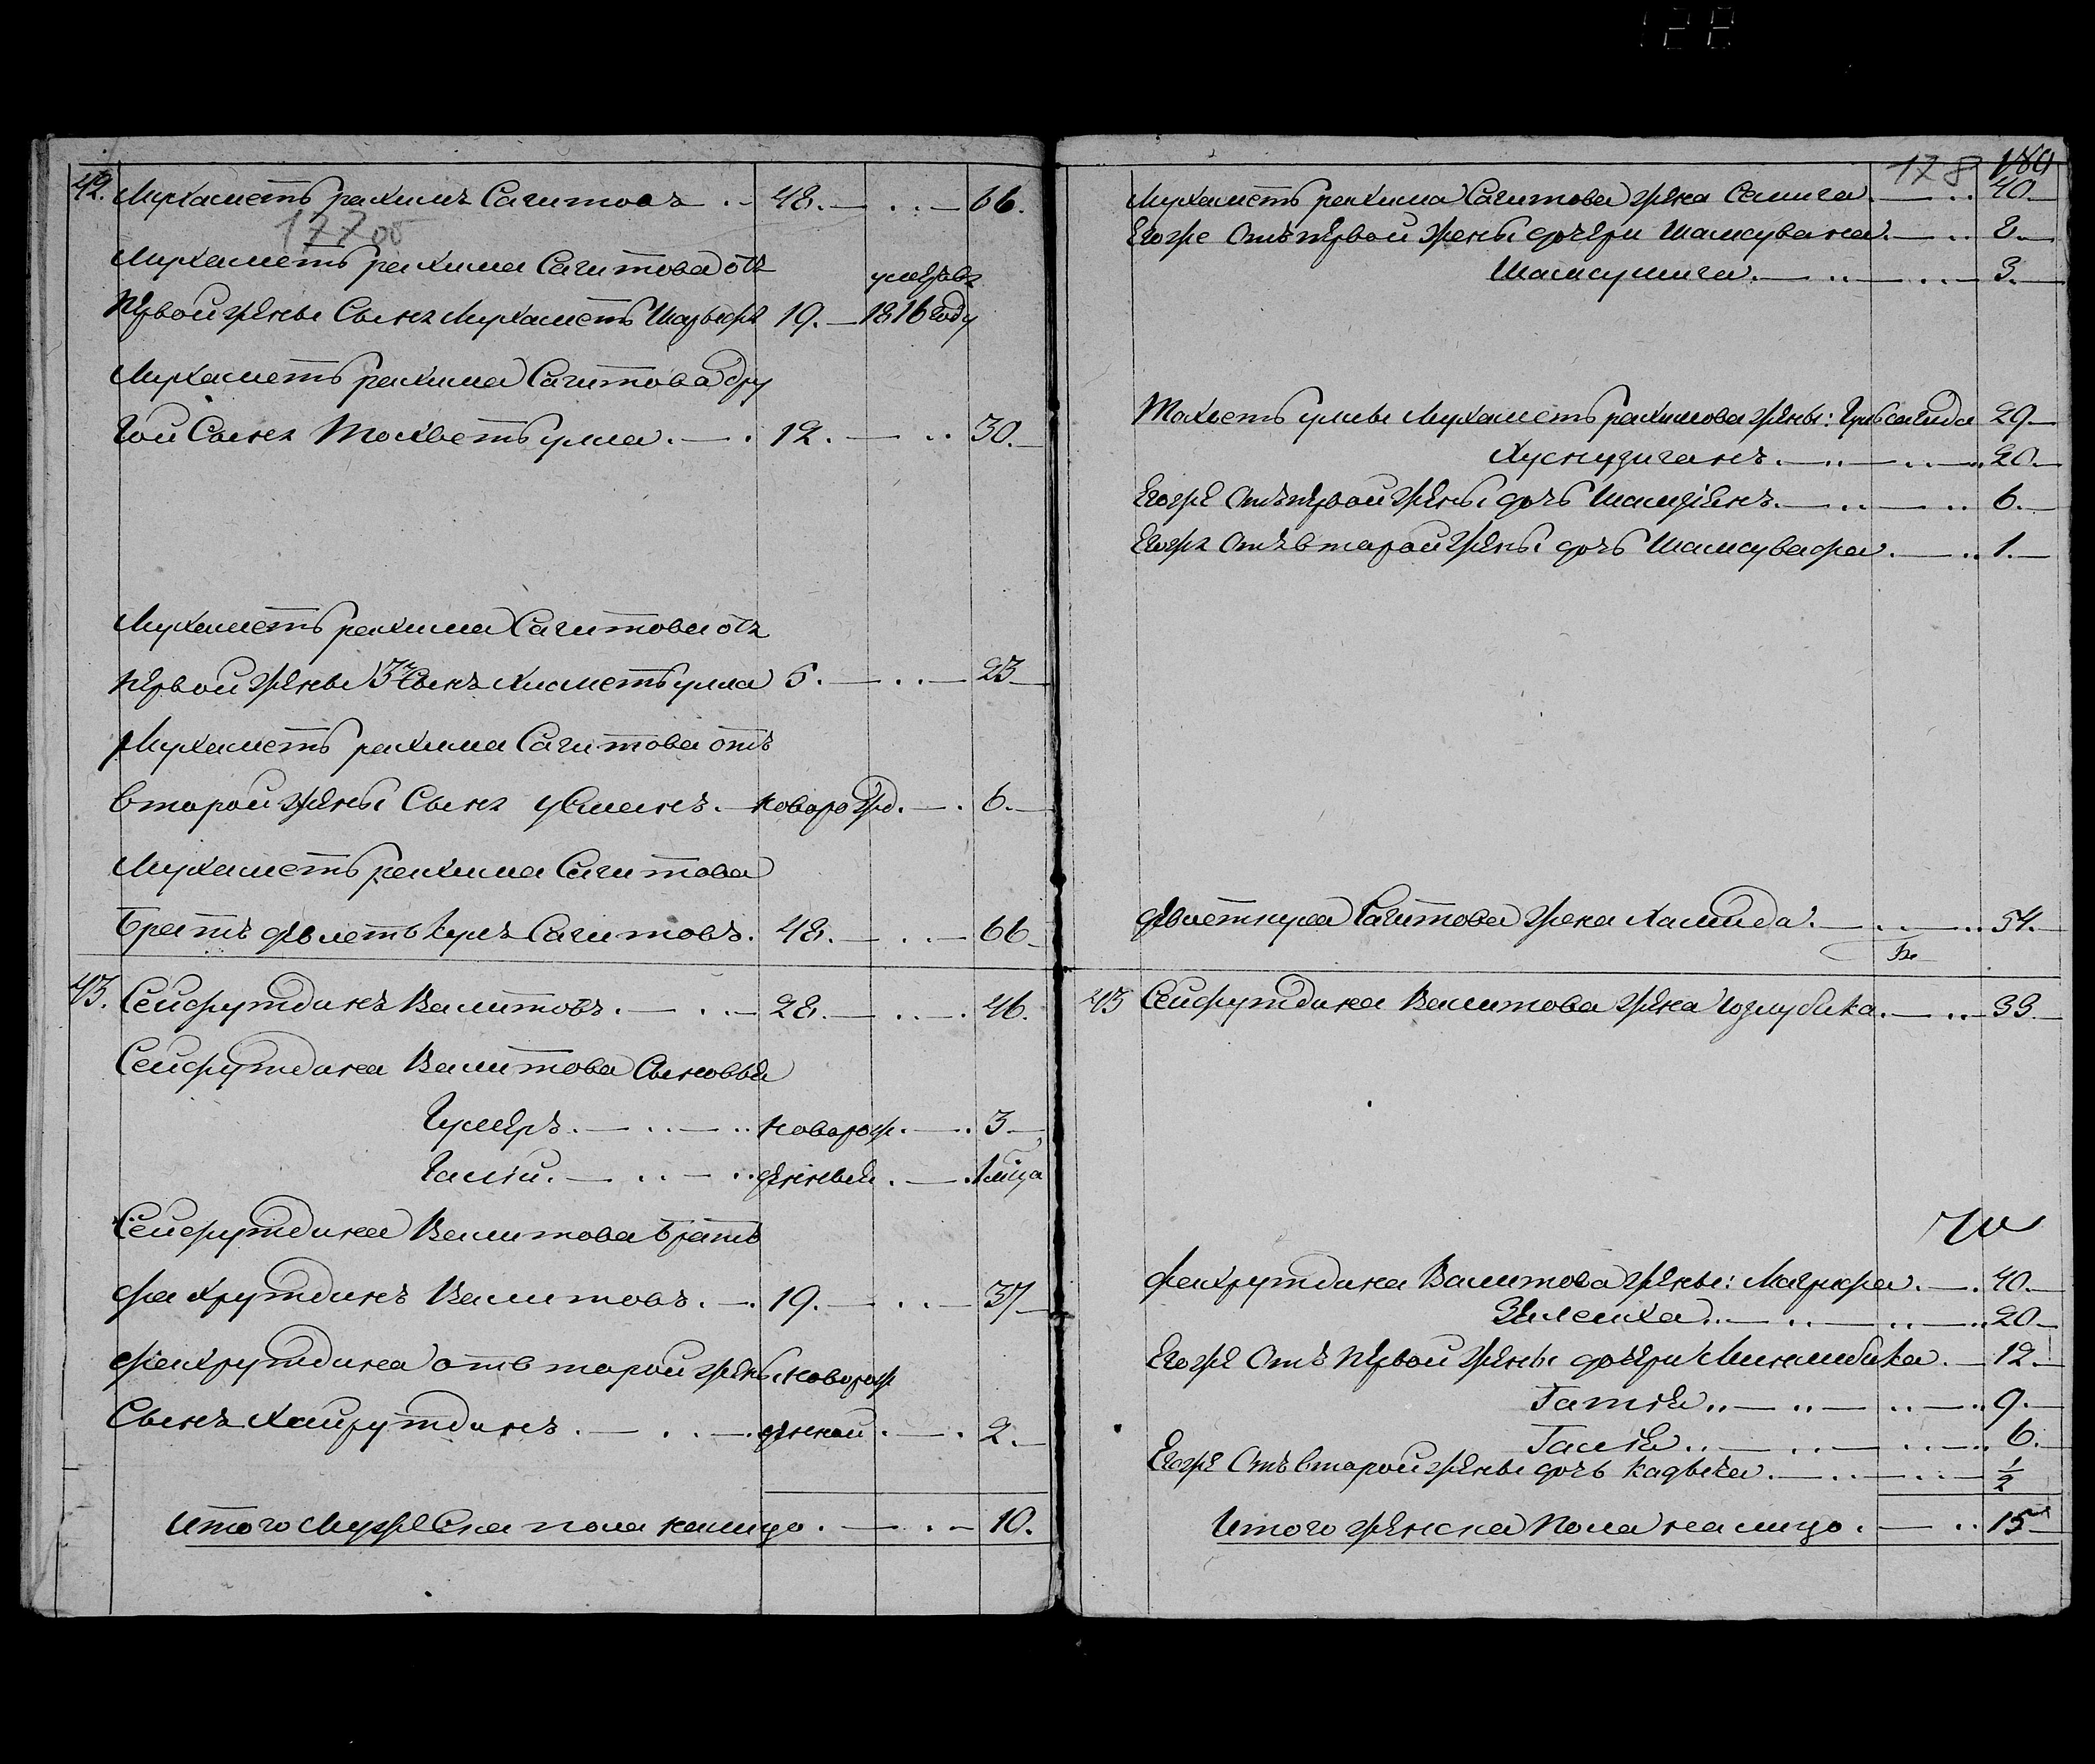 42. Мухаметь рахимъ Сагитовъ . . 48. — . . — 66.
177об
Мухаметь рахима Сагитова отъ
умеръ въ
первой жены Сынъ Мухаметь Шарыфъ 19. — 1816 году
Мухаметь рахима Сагитова дру
гой Сынъ Тохветь улла. — . 12. — . . 30. —
Мухаметь рахима Сагитова отъ
первой жены 3й Сынъ Хисметь улла 5. — . . — 23
Мухаметь рахима Сагитова отъ
второй жены Сынъ Усманъ. — новорожд. — . 6. —
Мухаметь рахима Сагитова
Братъ Девлеть кулъ Сагитовъ. 48. — . . — 66.
43. Сейфутдинъ Валитовъ. — . . — 28. — . . — . 46.
Сейфутдина Валитова Сыновья
Гумеръ. — . . — . . новорож. — . . 3 —
Галій. — . . — . . денныя. — . 1 мца
Сейфутдина Валитова Братъ
Фахрутдинъ Валитовъ. — . 19. — . . — 37 —
Фахрутдина отъ второй жены новорож
Сынъ Хайрутдинъ. — . . — . денной. — . 2. —
Итого Мужеска пола налицо. — . . — 10.
178 180
Мухаметь рахима Сагитова жена Салига. — . . 40. —
Егоже Отъ первой жены дочери Шамсувана. — . . 8. —
Шамсулига. — . . — . . . — 3. —
Тохветь уллы Мухаметь рахимова жены: Гульсагида 29. —
Хуснузиганъ. — . . — . . — . . 20. —
Егоже Отъ первой жены дочь Шамзіянъ. — . . — . . 6. —
Егоже Отъ второй жены дочь Шамсувафа. — . . 1. —
Девлеткула Сагитова жена Халида. — . . . . 54. —
43 Сейфутдина Валитова жена Гозлубика. — . . — 33. —
Фахрутдина Валитова жены: Магруфа. — . 40. —
Зялеиха. . — . . — . . — . . 20. —
Егоже Отъ первой жены дочери Минлибика. — 12. —
Гатія. . — . . — . . — . . 9. —
Галія. . — . . — . . — . . 6. —
Егоже Отъ второй жены дочь Кадыча. — . . — . . — 1/2
Итого женска Пола налицо. — . . 15 —